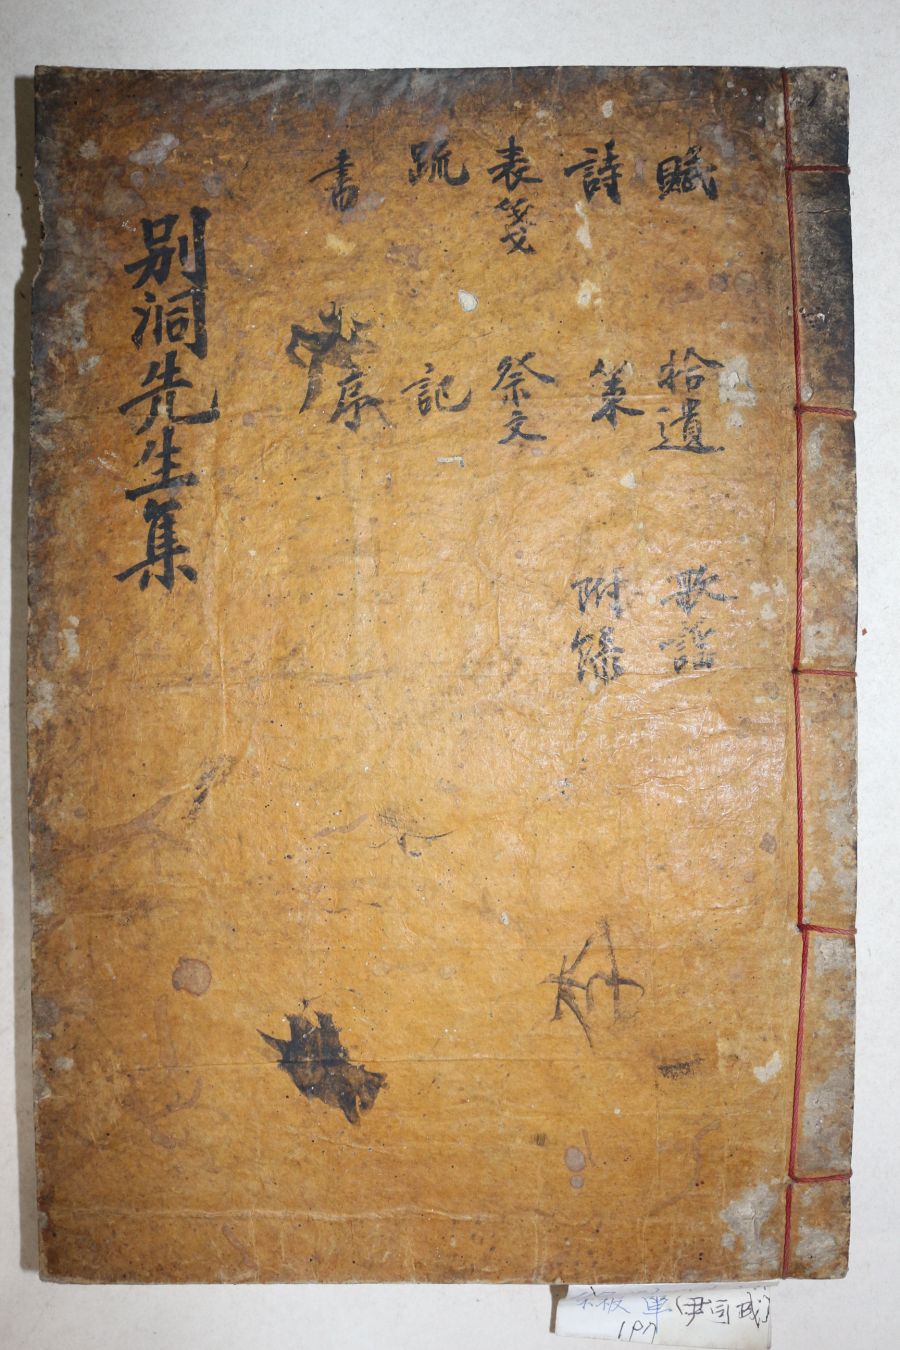 賦 拾遺 歌謠
詩 策 附錄
表箋 祭文
疏 記
書 序
別洞先生集
單(尹司成)
197